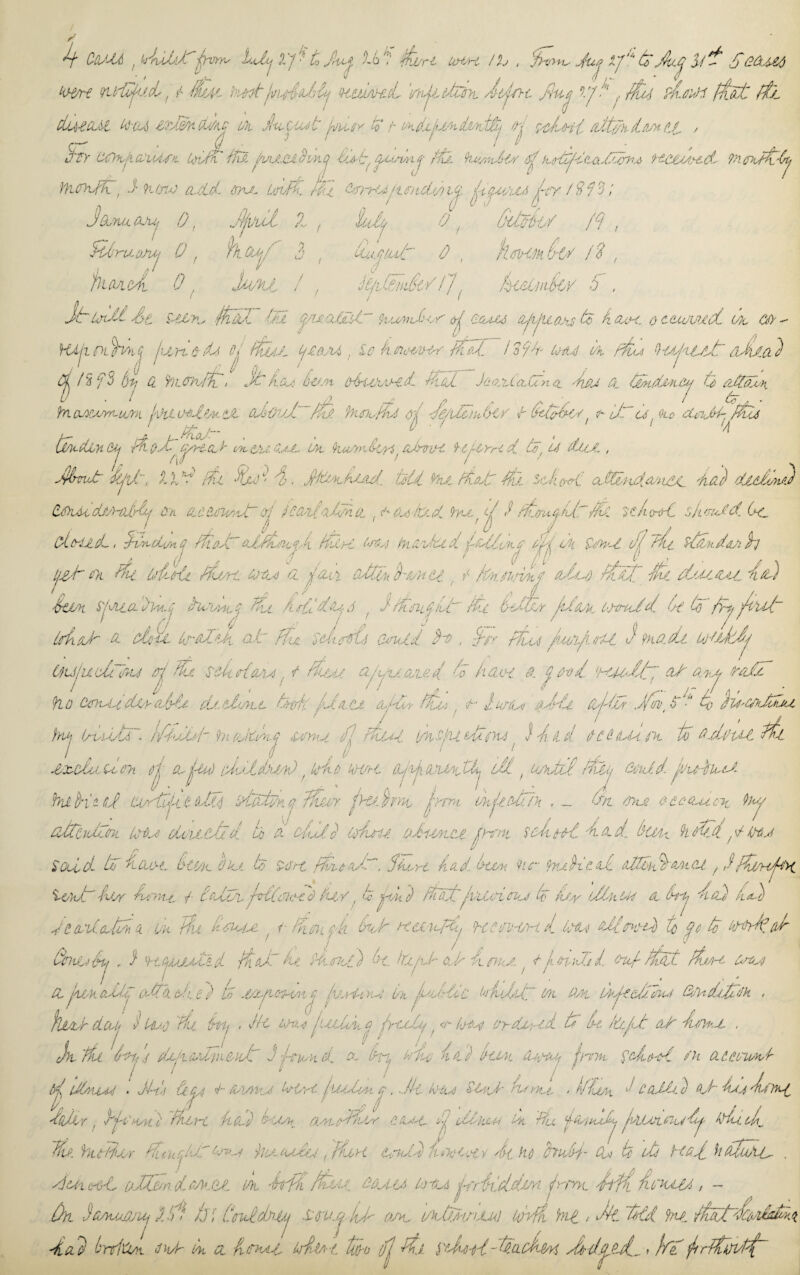 4 cases, whilst from July 27th to Aug 26th there were 12. From Aug 27th to Aug 31st 5 cases
were notified, & these most probably received infection before Aug 27th, this shows that the
disease was extending in August prior to & independently of school attendance.
For comparison with the preceding list, giving the number of notifications received monthly
month, I now add one with the corresponding figures for 1893;
January 0, April 2, July 0, October 19,
February 0, May 3, August 0, November 18,
March 0, June 1, September 17, December 5.
It will be seen that the greatest number of cases appears to have occurred in cor-
responding periods of these years, so however that 1894 was in this respect ahead
of 1893 by a month. It has been observed that Scarlatina has a tendency to attain
maximum prevalence about the months of September & October, & it is, no doubt, to this
tendency that great increase in numbers, above referred to, is due.
About Sept. 22nd the Revd. Mr. Menhead told me that the school attendance had declined
considerably on account of scarlatina, & asked me, if I thought the school should be
closed. Finding that although there was marked falling off in some of the standards
yet on the whole there was a fair attendance, & knowing also that the disease had
been spreading during the holidays, I thought the better plan would be to try first
what a close watch at the schools could do. For this purpose I made weekly
inspections of the scholars, & these appeared to have a good result, at any rate
no considerable decline took place after this, & I was able after Nov. 5th to discontinue
my visits. Whilst making some of these inspections, I had occasion to advise the
exclusion of a few children, who were apparently ill, until they could produce
medical certificates stating their freedom from infection. — On one occasion my
attention was directed to a child whose absence from school had been noted, & was
said to have been due to sore throat. There had been no medical attendance, I therefore
sent her home & later followed her, to find that previous to her illness a boy had had
scarlatina in the house, & though but recently recovered was allowed to go to work at
. I requested that he should be kept at home, & pointed out that there was
a penalty attached to exposing persons in public whilst in an infectious condition.
Next day I saw the boy. He was peeling freely, & was ordered to be kept at home.
In the boy's department I found a boy who had been away from school on account
of illness. His legs & arms were peeling. He was sent home. When I called at his home
later, I found there had been another case of illness in the family previously which
the mother thought was measles, there could however be no doubt as to its real nature.
School attendance in both these cases was forbidden from both houses, —
On January 25th Dr Couldrey sought an interview with me. He told me that Scarlatina
had broken out in a house where two of the school-teachers lodged. We forthwith